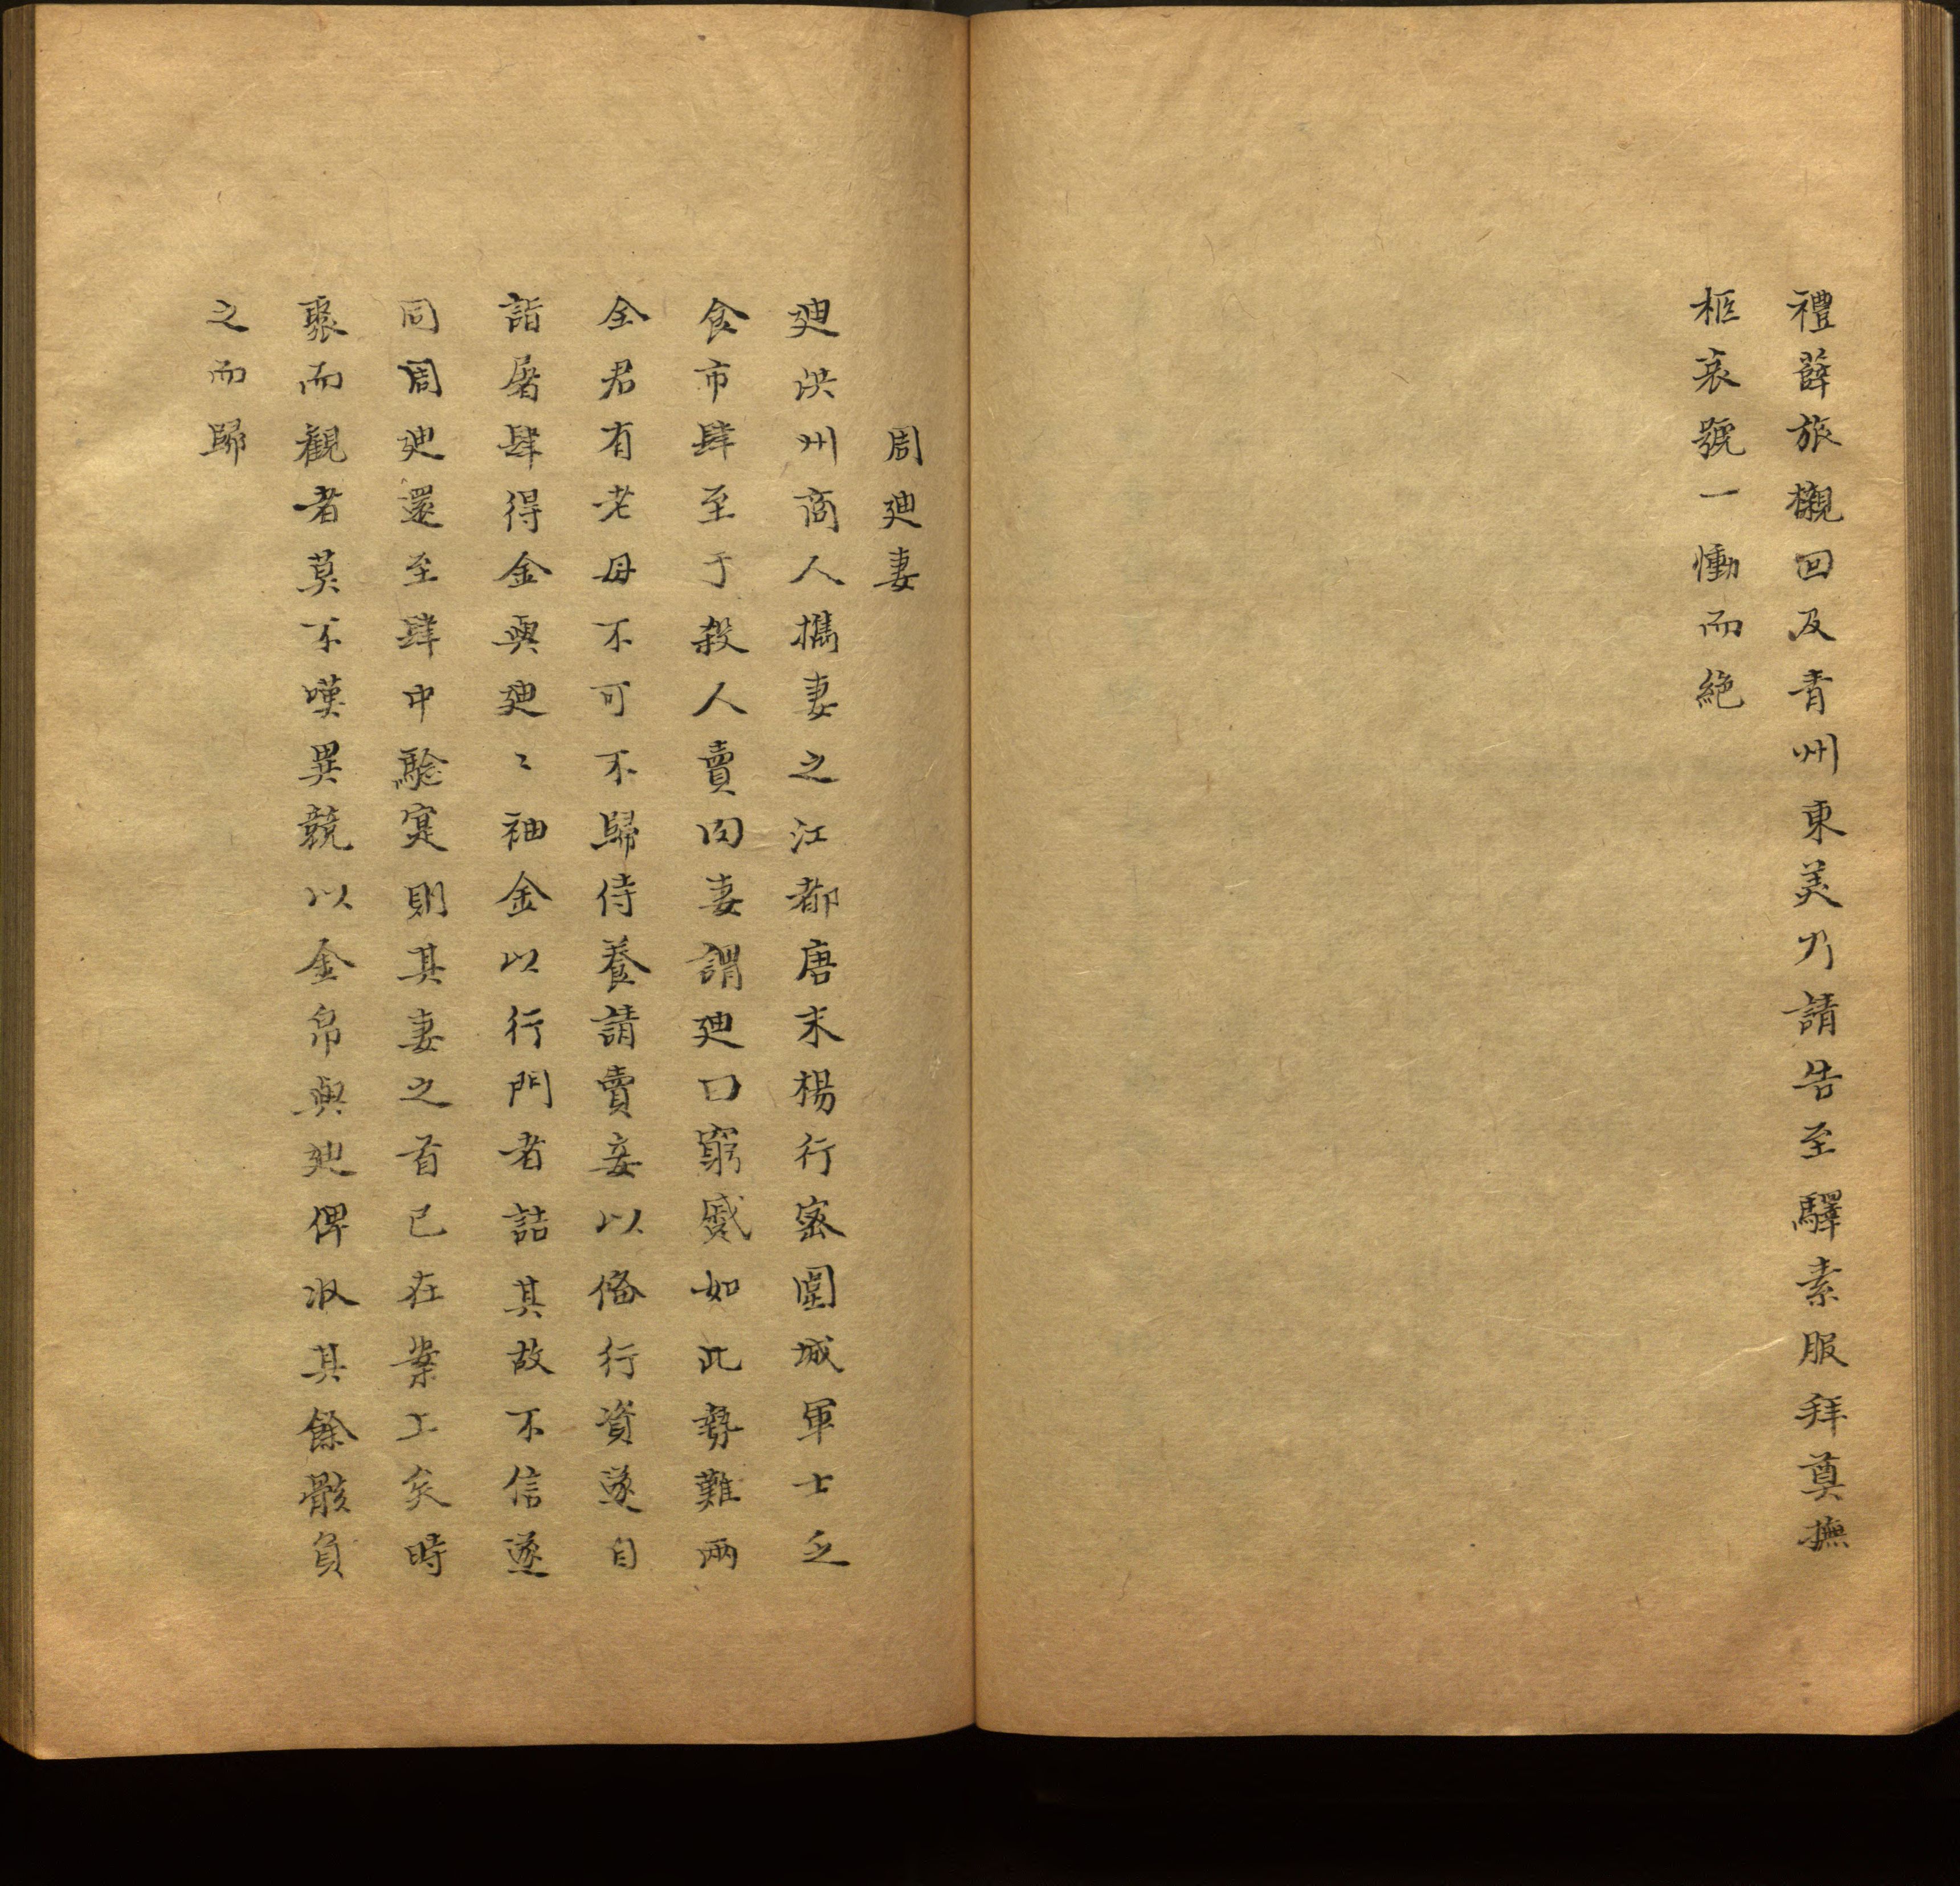 禮薛旅櫬回及青州東美乃請告至驛素服拜奠撫
柩哀號一慟而絶
周廸妻
廸洪州商人攜妻之江都唐末楊行宻圍城軍士乏
食市肆至于殺人賣肉妻謂廸曰窮蹙如此勢難兩
全君有老母不可不歸侍養請賣妾以俻行資遂自
詣屠肆得金與廸〻袖金以行門者詰其故不信遂
同周廸還至肆中驗寔則其妻之首已在案上矣時
聚而觀者莫不嘆異競以金帛與廸俾収其餘骸負
之而歸